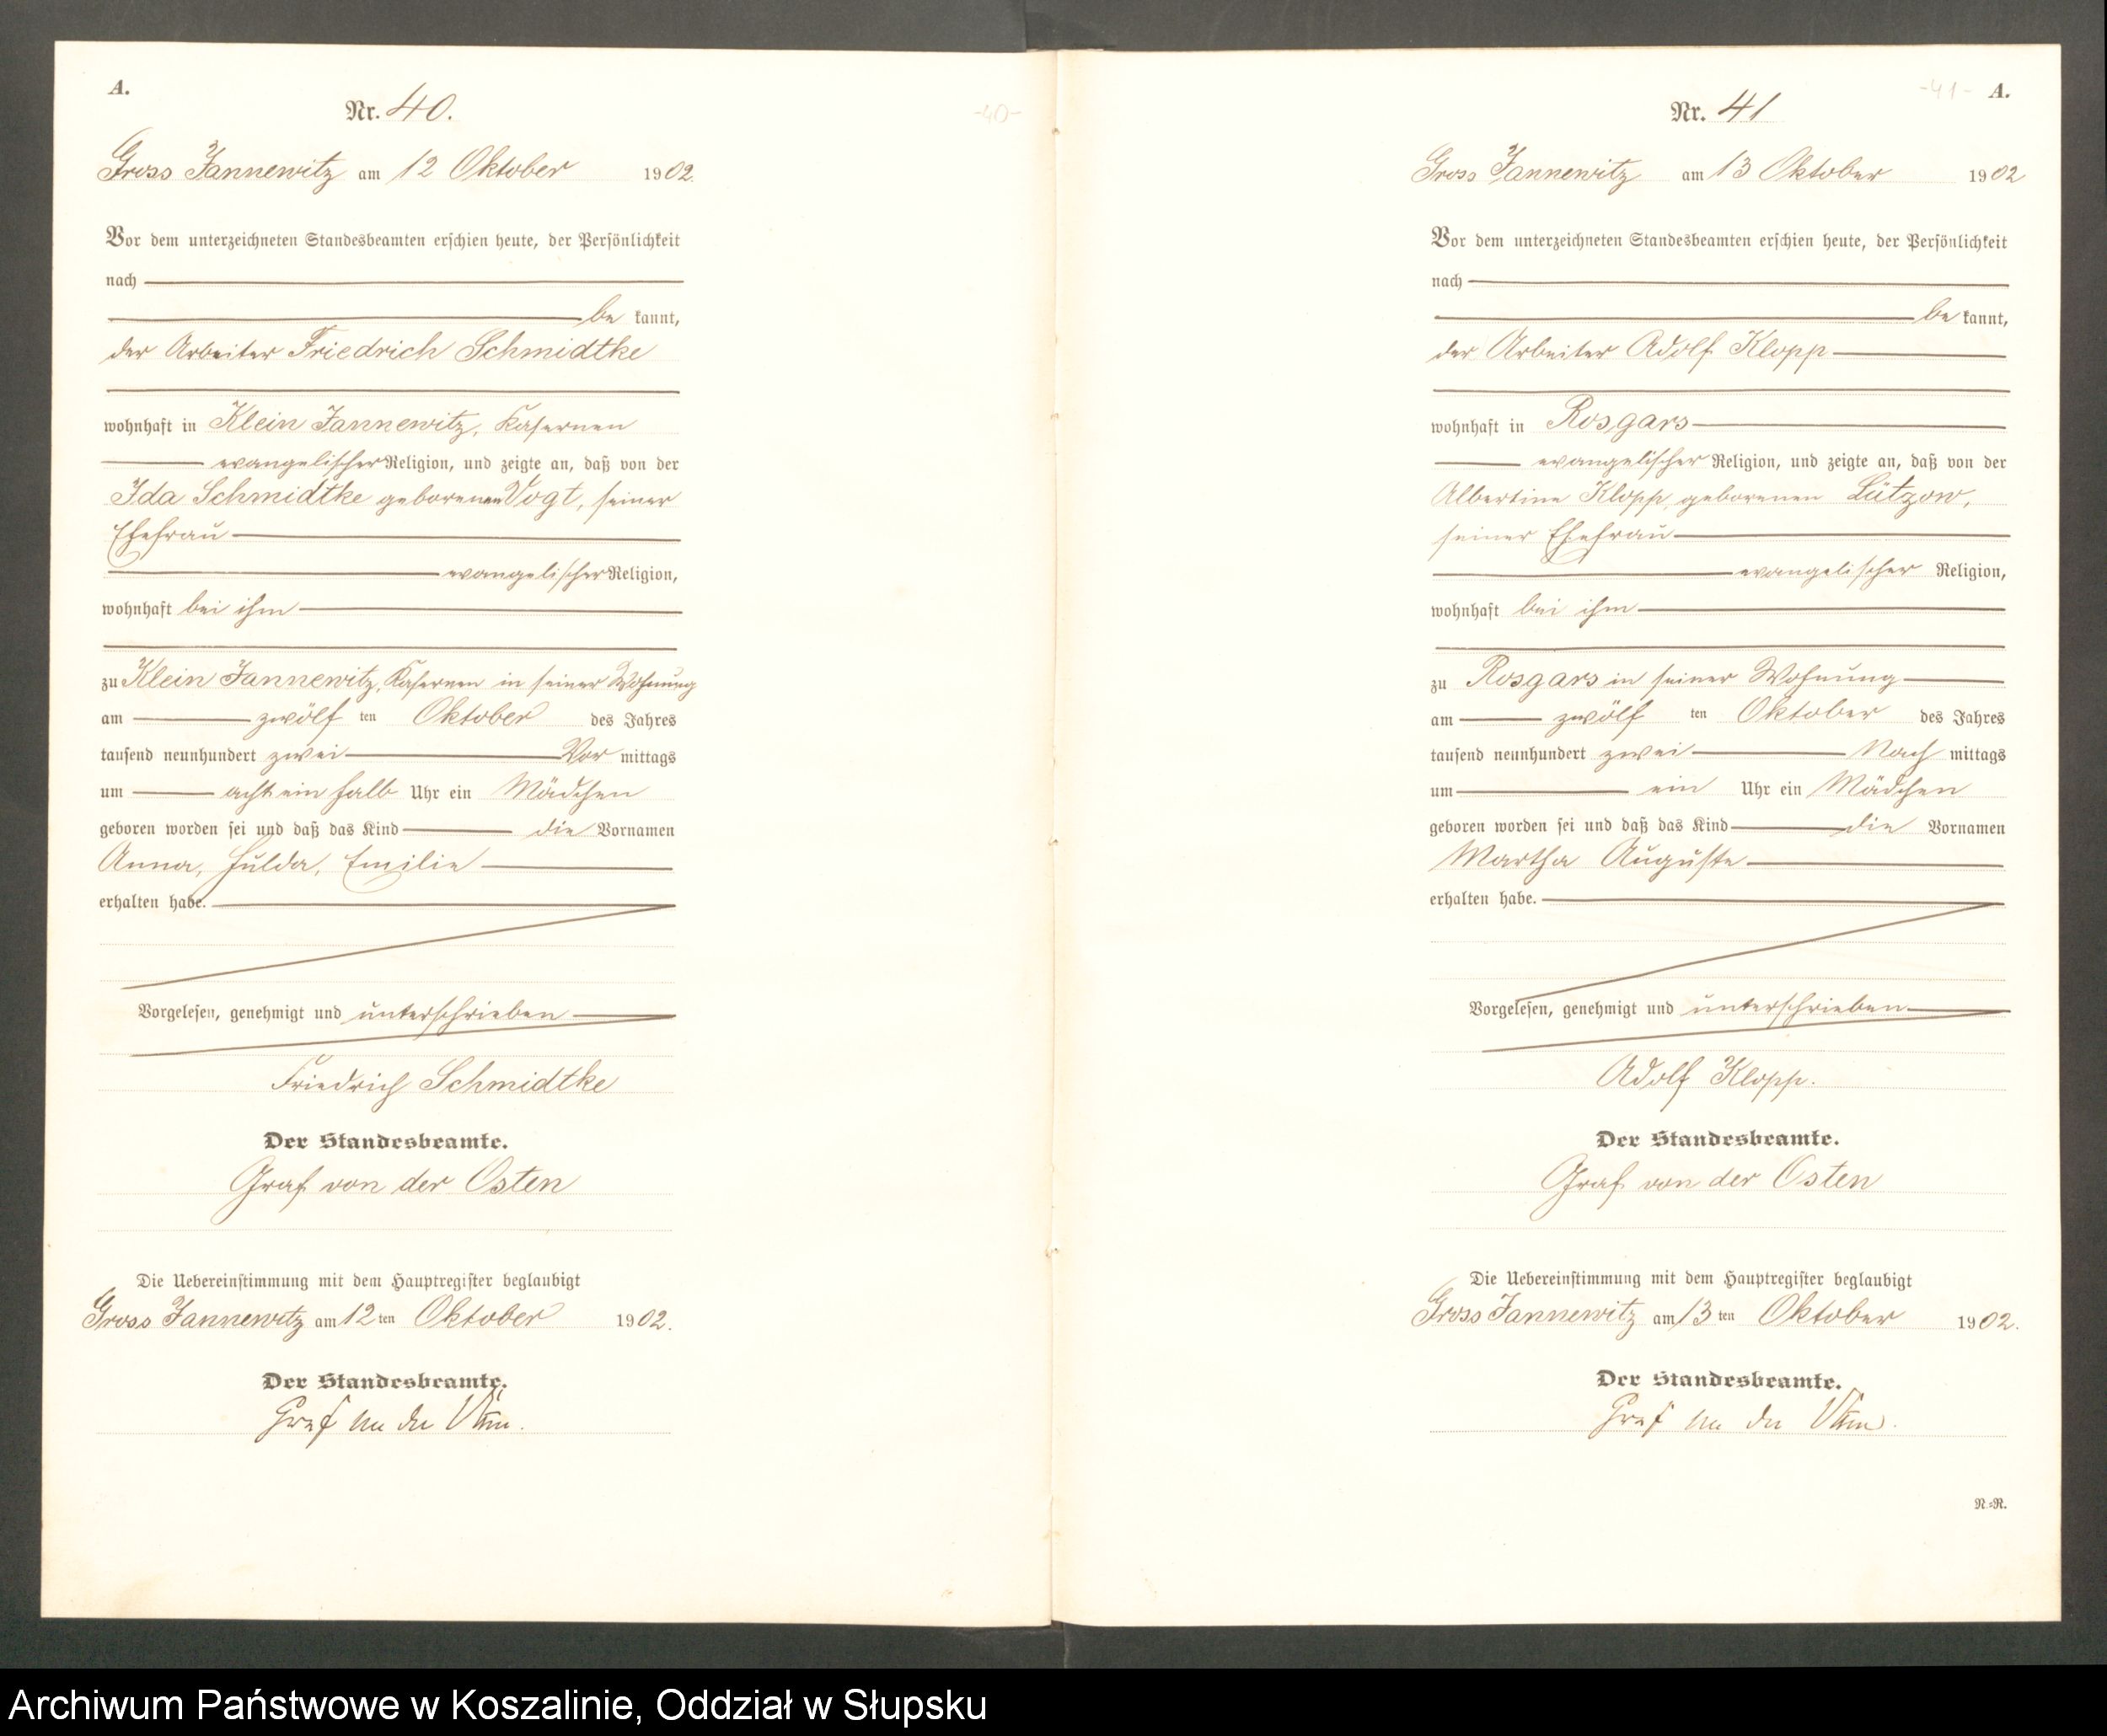 A.
Nr. 40.
Gross Jannewitz am 12 Oktober 1902.
Vor dem unterzeichneten Standesbeamten erschien heute, der Persönlichkeit
nach
be kannt,
der Arbeiter Friedrich Schmidtke
wohnhaft in Klein Jannewitz, Kasernen
evangelischer Religion, und zeigte an, daß von der
Ida Schmidtke geborenen Vogt, seiner
Ehefrau
evangelischer Religion,
wohnhaft bei ihm
zu Klein Jannewitz, Kasernen in seiner Wohnung
am zwölf ten Oktober des Jahres
tausend neunhundert zwei Vor mittags
um acht ein halb Uhr ein Mädchen
geboren worden sei und daß das Kind die Vornamen
Anna, Hulda, Emilie
erhalten habe.
Vorgelesen, genehmigt und unterschrieben
Friedrich Schmidtke
Der Standesbeamte.
Graf von der Osten
Die Uebereinstimmung mit dem Hauptregister beglaubigt
Gross Jannewitz am 12 ten Oktober 1902.
Der Standesbeamte.
Graf von der Osten.
-40-
-41- A.
Nr. 41
Gross Jannewitz am 13 Oktober 1902
Vor dem unterzeichneten Standesbeamten erschien heute, der Persönlichkeit
nach
be kannt,
der Arbeiter Adolf Klopp
wohnhaft in Rosgars
evangelischer Religion, und zeigte an, daß von der
Albertine Klopp, geborenen Lützow,
seiner Ehefrau
evangelischer Religion,
wohnhaft bei ihm
zu Rosgars in seiner Wohnung
am zwölf ten Oktober des Jahres
tausend neunhundert zwei Nach mittags
um ein Uhr ein Mädchen
geboren worden sei und daß das Kind die Vornamen
Martha Auguste
erhalten habe.
Vorgelesen, genehmigt und unterschrieben
Adolf Klopp.
Der Standesbeamte.
Graf von der Osten
Die Uebereinstimmung mit dem Hauptregister beglaubigt
Gross Jannewitz am 13 ten Oktober 1902.
Der Standesbeamte.
Graf von der Osten.
N.=R.
Archiwum Państwowe w Koszalinie, Oddział w Słupsku